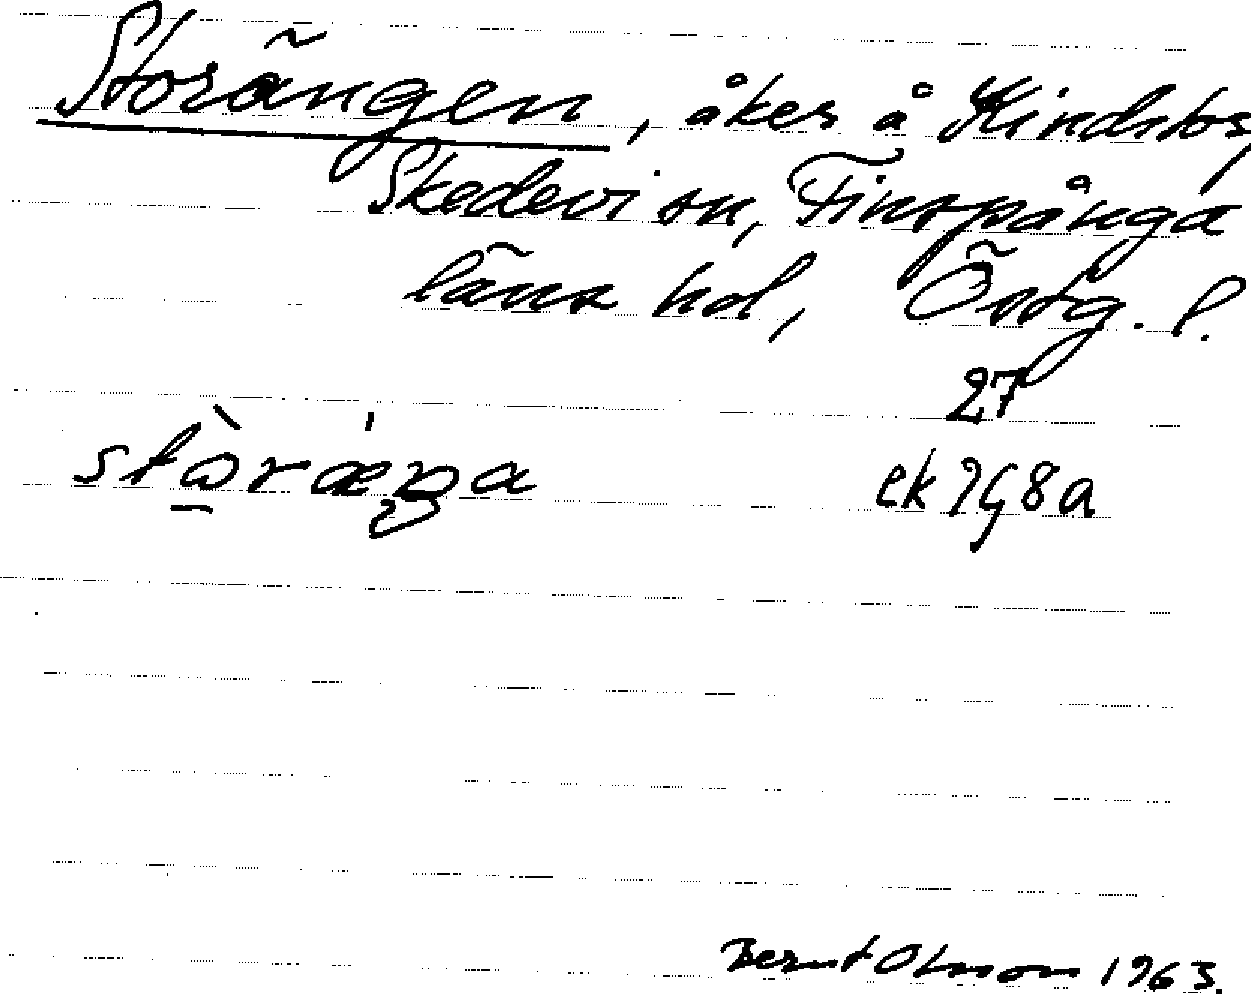 Storängen, åker å Kindsbo,
Skedevi sn, Finspånga
läns hd, Östg. l.
27
stòræŋa ek 798a
Bernt Olsson 1963.